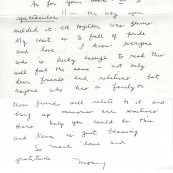 As for your book - it
spectacular!! - the way you
melded it all together was genius
My heart is so full of pride
and love. I know everyone
who is lucky enough to read this
will feel the same - not only
dear friends and relatives, but
anyone who has a family or
friends will relate to it and
bring up memories are
there. Only you could do this
and Nana is just beaming
So much love and
gratitude